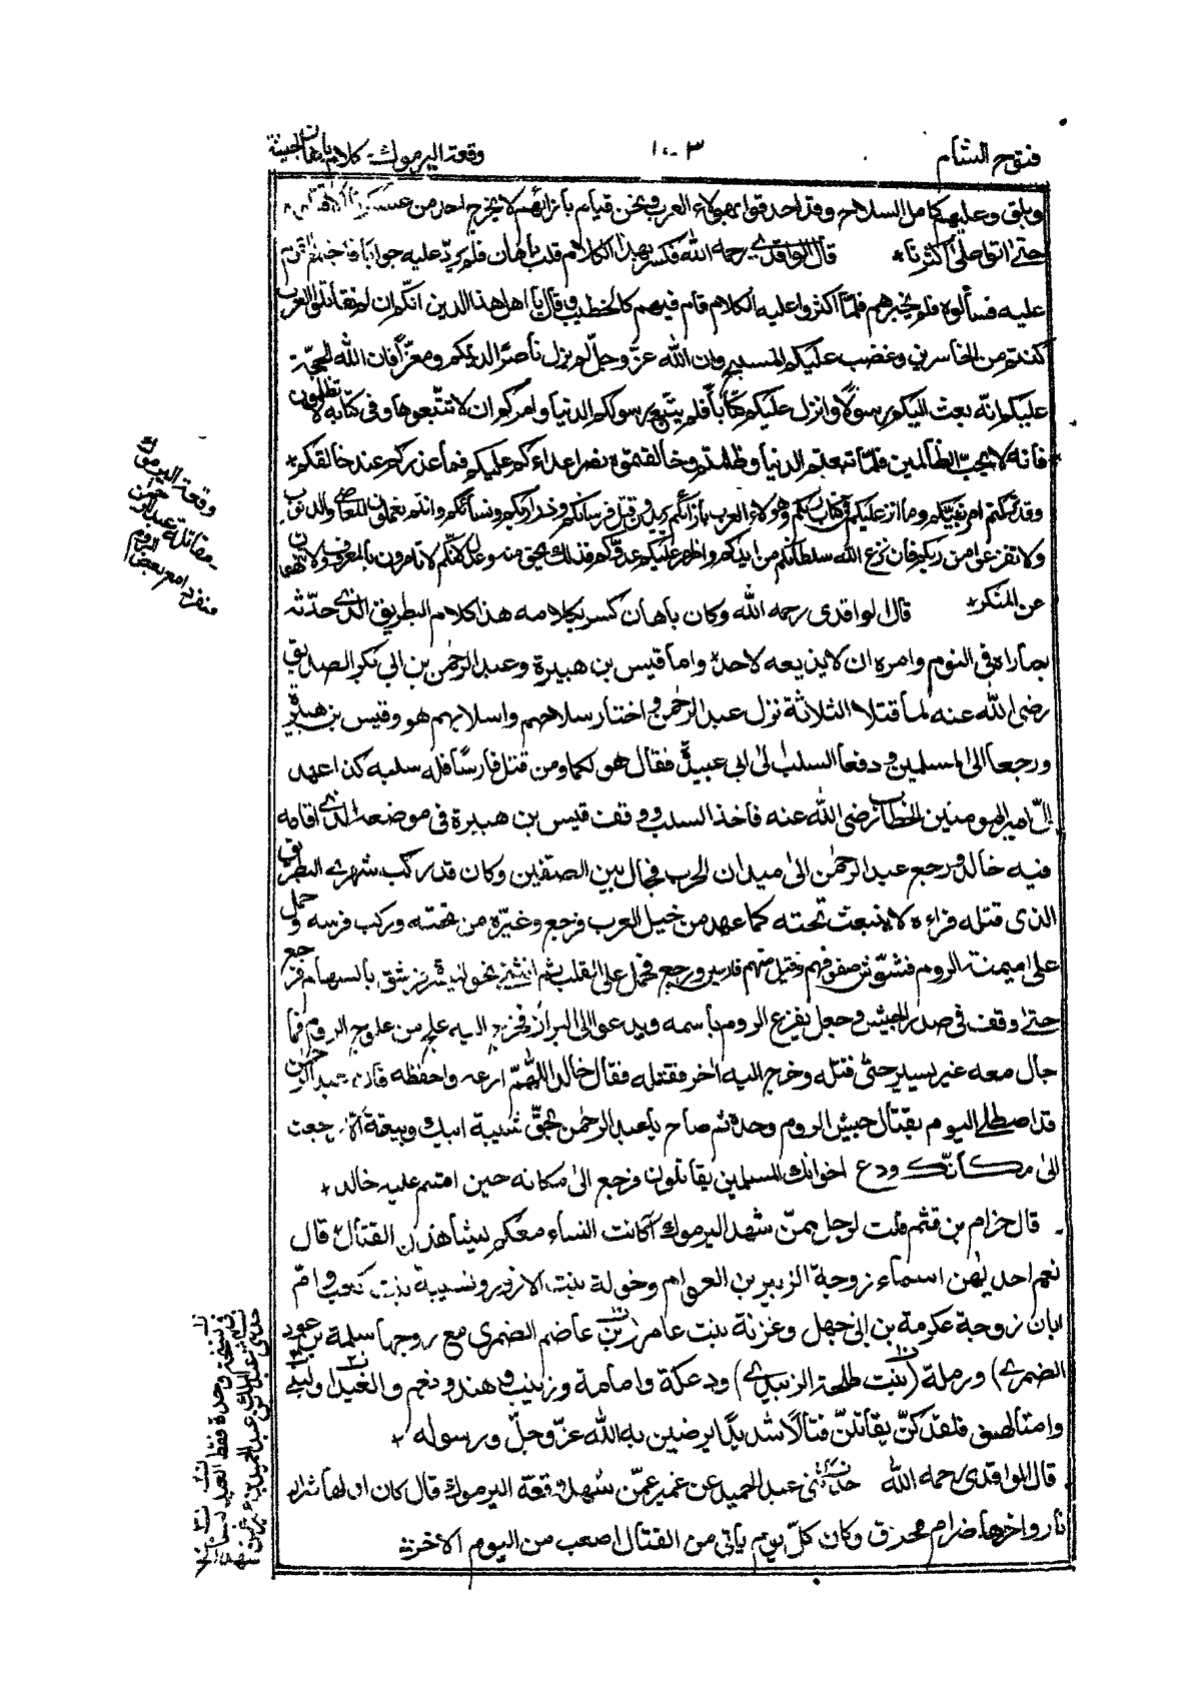 فتوح الشام
١٠٣
وقعة اليرموك كلام باهان لجيشه
وبلق وعليهم كامل السلاح وقد احدقوا بهولاء العرب ونحن قيام بازائهم لا يخرج احد من عسكرنا
حتى اتوا على اكثرنا * قال الواقدى رحمه الله فكسر بهذا الكلام قلب باهان فلم يرد عليه جوابا فاجتمع
عليه فسألوه فلم يخبرهم فلما اكثروا عليه الكلام قام فيهم كالخطيب وقال يا اهل هذا الدين انكم ان لم تقاتلوا العرب
كنتم من الخاسرين وغضب عليكم المسيح وان الله عزّ وجلّ لم يزل ناصرًا لدينكم ومعزًّا فان الله الحجة
عليكم انه بعث اليكم رسولًا وانزل عليكم كتابًا فلم يتبع رسولكم الدنيا وامركم ان لا تتبعوها وفى كتابه لا تظلمون
فانه لا يحبّ الظالمين فلمّا تبعتم الدنيا وظلمتم وخالفتموه نصر اعداءكم عليكم فما عذركم عند خالقكم *
وقد تركتم امر نبيّكم وما انزل عليكم فى كتاب ربكم وهولاء العرب بازائكم يريدون قتل فرسانكم وذراريكم ونسائكم وانتم تعملون المعاصى والذنوب
ولا تفزعوا من ربكم فان نزع الله سلطانكم من ايديكم واظهر عليكم عدوّكم فذلك بحق منه وعدل لانكم لا تامرون بالمعروف ولا تنهون
عن المنكر * قال الواقدى رحمه الله وكان باهان كسر بكلامه هذا كلام البطريق الذى حدّثه
بما راه فى النوم وامره ان لا يذيعه لاحد واما قيس بن هبيرة وعبد الرحمٰن بن ابى بكر الصديق
رضى الله عنه لما قتلا الثلاثة نزل عبد الرحمٰن واختار سلاحهم واسلابهم هو وقيس بن هبيرة
ورجعا الى المسلمين ودفعا السلب الى ابى عبيدة فقال هو لكما ومن قتل فارسًا فله سلبه كذا عهد
الىّ امير المومنين بن الخطاب رضى الله عنه فاخذا السلب ووقف قيس بن هبيرة فى موضعه الذى اقامه
فيه خالد ورجع عبد الرحمٰن الى ميدان الحرب فجال بين الصفين وكان قد ركب شهرى البطريق
الذى قتله فراٰه لا ينبعث تحته كما عهد من خيل العرب فرجع وغيّره من تحته وركب فرسه وحمل
على ميمنة الروم فشوّش صفوفهم وقتل منهم فارسين ورجع فحمل على القلب ثم انثنى نحو الميسرة برشق بالسهام فرجع
حتى وقف فى صدر الجيش وجعل يفزع الروم باسمه ويدعوا الى البراز فخرج اليه علج من علوج الروم فما
جال معه غير يسير حتى قتله وخرج اليه اٰخر فقتله فقال خالد اللّٰهمّ ارعه واحفظه فان عبد الرحمٰن
قد اصطلى اليوم بقتال جيش الروم وحده ثم صاح يا عبد الرحمٰن بحقّ شيبة ابيك وبيعته الّا رجعت
الى مكانك ودع اخوانك المسلمين يقاتلون فرجع الى مكانه حين اقسم عليه خالد *
قال حزام بن قثم قلت لرجل ممّن شهد اليرموك أكانت النساء معكم يشاهدن القتال قال
نعم احديهن اسماء زوجة الزبير بن العوام وخولة بنت الازور ونسيبة بنت كعب وامّ
ابان زوجة عكرمة بن ابى جهل وغزنة بنت عامر بن عاضم الضمرى مع زوجها سلمة بن عود
الضمرى) ورملة (بنت طلحة الزبيدى) ودعكة وامامة وزينب وهند ونعم والغيدا ولبنى
وامثالهن فلقد كنّ يقاتلنّ قتالًا شديدًا يرضين به الله عزّ وجلّ ورسوله *
قال الواقدى رحمه الله حدثنى عبد الحميد عن عمير عمّن شهد وقعة اليرموك قال كان اولها شرار
نار واخرها ضرام محرق وكان كلّ يوم ياتى من القتال اصعب من اليوم الاٰخر
وقعة اليرموك
مقاتلة عبد الرحمن
منفردا مع بعض الروم